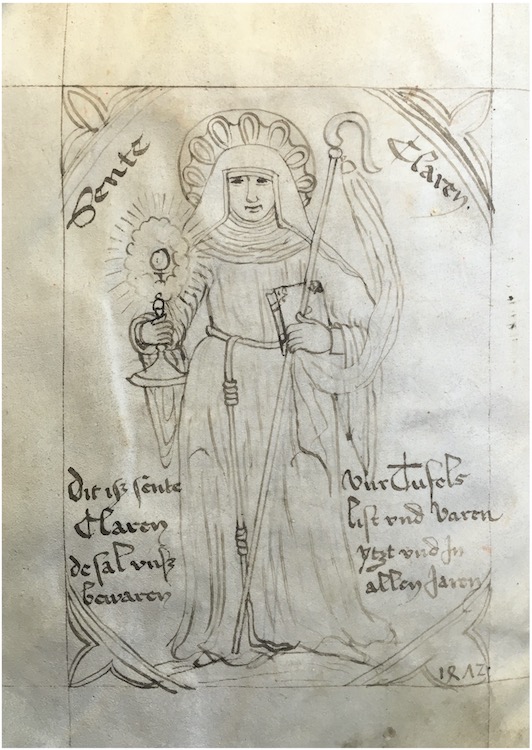 Sente Claren.
Dit iß sente
Claren
de sal vnß
bewaren
vur Tufels
list vnd varen
ytzt vnd Jn
allen Jaren
1472